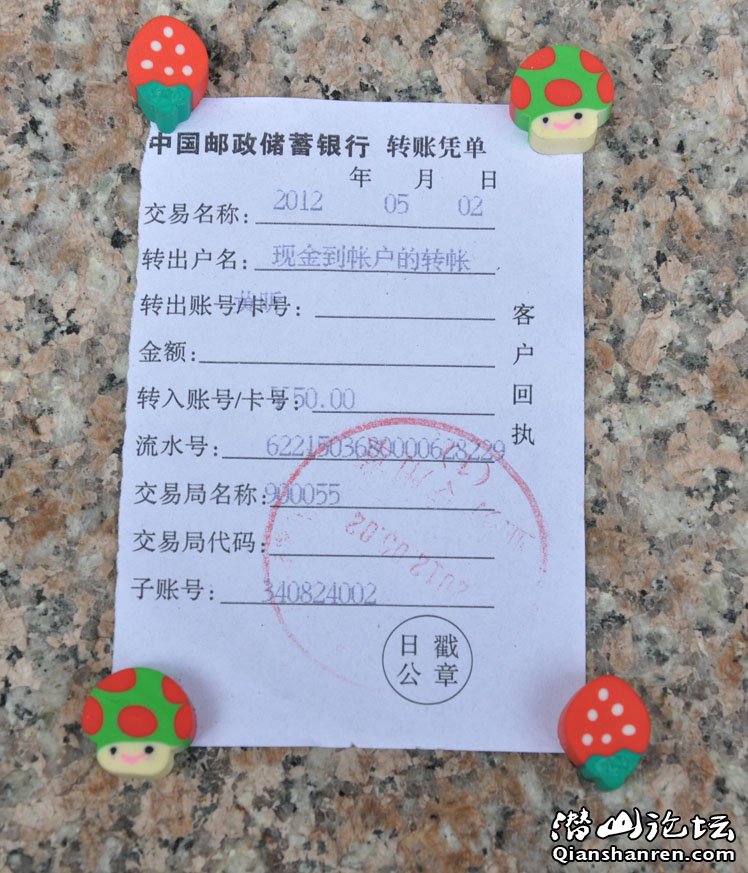 中国邮政储蓄银行 转账凭单
年 月 日
2012 05 02
交易名称:
转出户名: 现金到帐户的转帐
转出账号/卡号:
金额:
转入账号/卡号: 550.00
流水号: 6221503680000628229
交易局名称: 900055
交易局代码:
子账号: 340824002
客户回执
2012.05.02
(1)
日戳
公章
潜山论坛
Qianshanren.com